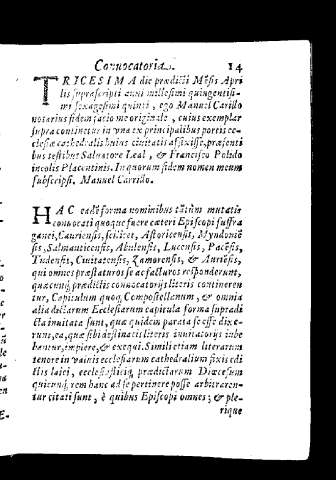 Convocatoria. 14
TRICESIMA die prædicti Mẽsis Apri
lis suprascripti anni millesimi quingentisi-
mi sexagesimi quinti, ego Manuel Carillo
notarius fidem facio me originale, cuius exemplar
supra continetur in vna ex principalibus portis ec-
clesiæ cathedralis huius ciuitatis affixisse, præsenti
bus testibus Saluatore Leal, & Francisco Pulido
incolis Placentinis. In quorum fidem nomen meum
subscripsi. Manuel Carrido.
HAC eadẽ forma nominibus tãtùm mutatis
conuocati quoque fuere cæteri Episcopi suffra
ganei, Cauriensis, scilicet, Astoricensis, Myndoniẽ
sis, Salmanticensis, Abulensis, Lucensis, Pacẽsis,
Tudensis, Ciuitatensis, Zamorensis, & Auriẽsis,
qui omnes præstaturos se ac facturos respõderunt,
quæcunq; prædictis conuocatorijs literis continеren
tur, Capitulum quoq; Compostellanum, & omnia
alia dictarum Ecclesiarum capitula forma supradi
cta inuitata sunt, quæ quidem parata se esse dixe-
runt, ea, quæ sibi destinatis literis inuitatorijs iube
bantur, capere, & exequi. Simili etiam literarum
tenore in vaiuis ecclesiarum cathedralium fixis edi
ctis laici, ecclesiasticiq; prædictarum Diœcesum
quicunq; rem hanc ad se pertinere posse arbitraren-
tur citati sunt, è quibus Episcopi omnes, & ple-
rique